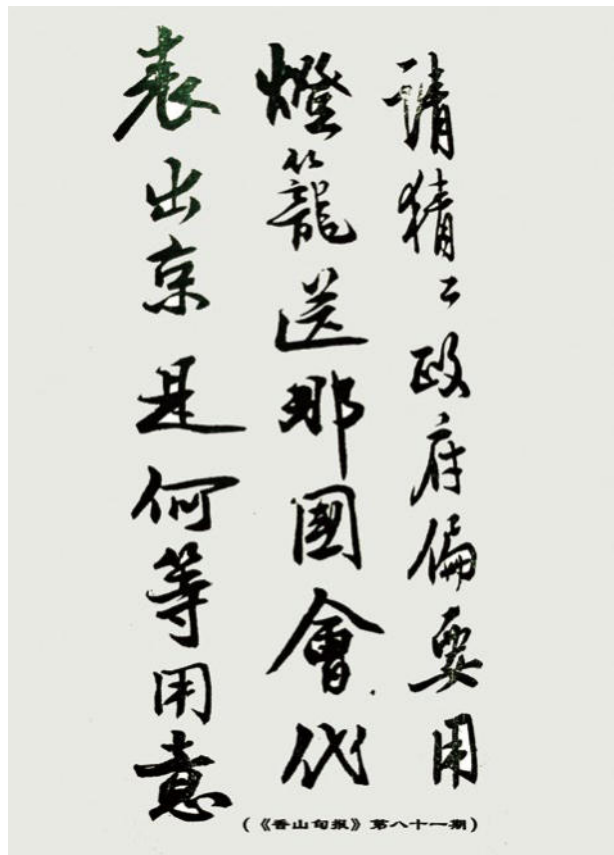 請猜〻政府偏要用
燈籠送那國會代
表出京是何等用意
(《香山旬报》第八十一期)